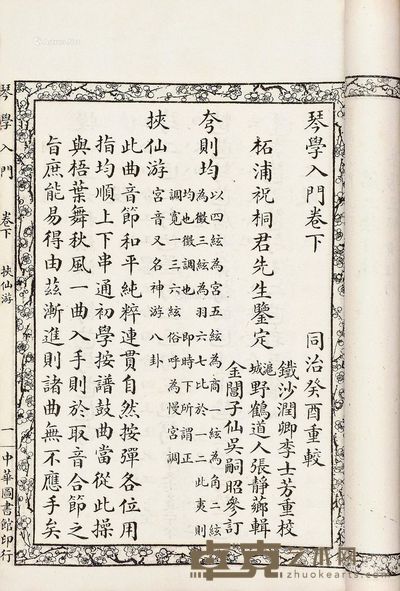 琴學入門卷下 同治癸酉重較
柘浦祝桐君先生鑒定
鐵沙潤卿李士芳重校
滬城野鶴道人張靜薌輯
金閶子仙吳嗣昭參訂
夷則均
以四絃為宮五絃為商一絃為角二絃
為徵三絃為羽六七比於一二此夷則
均也徵調也即時下所謂正
調寬一三六絃俗呼為慢宮調
挾仙游 宮音又名神游八卦
此曲音節和平純粹連貫自然按彈各位用
指均順上下串通初學按譜鼓曲當從此操
與梧葉舞秋風一曲入手則於取音合節之
旨庶能易得由茲漸進則諸曲無不應手矣
琴學入門 卷下 挾仙游 一 中華圖書館印行
卓克艺术网
www.zhuokearts.com